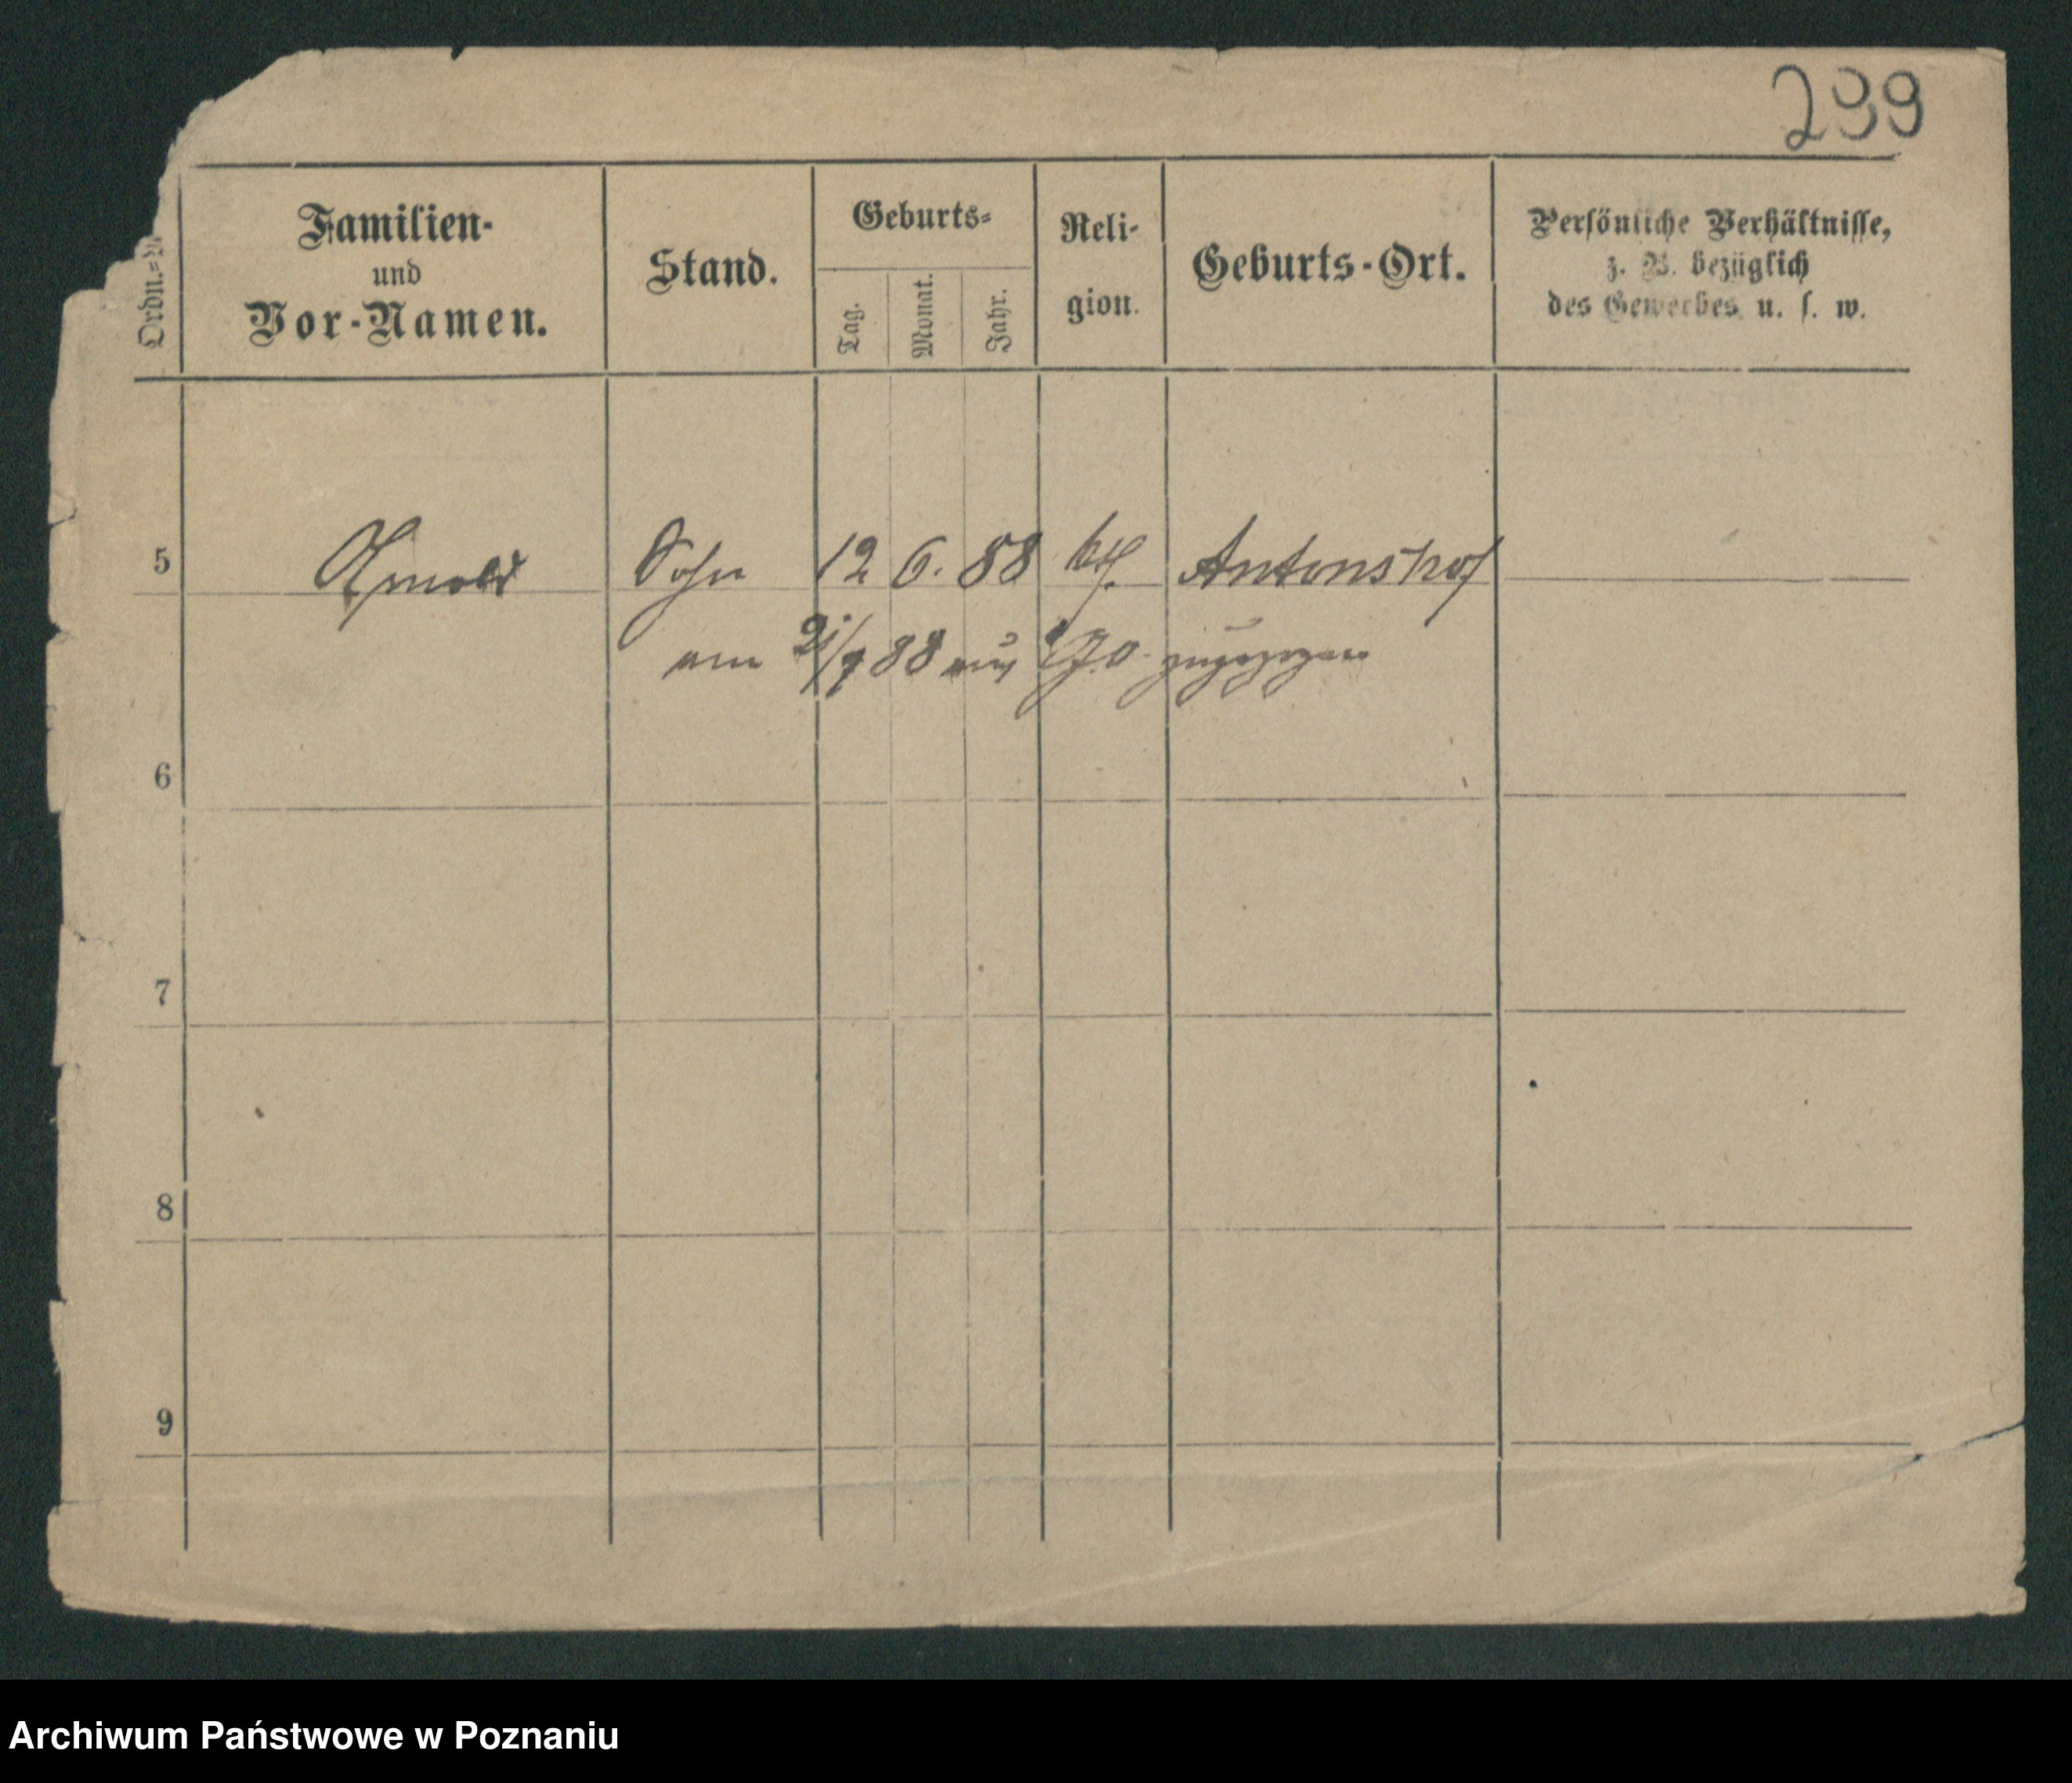 299
Ordn.=N
Familien-
und
Vor-Namen.
Stand.
Geburts=
Tag.
Monat.
Jahr.
Reli-
gion.
Geburts-Ort.
Persönliche Verhältnisse,
z. B. bezüglich
des Gewerbes u. s. w.
5 Arnold Sohn 12 6. 88 Antonshof
am 88 aus zugezogen
6
7
8
9
Archiwum Państwowe w Poznaniu